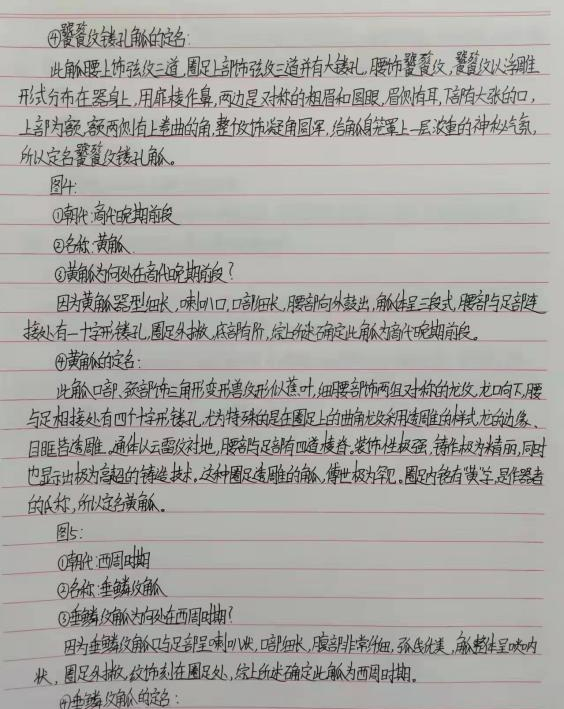 ④饕餮纹镂孔觚的定名:
此觚腰上饰弦纹三道,圈足上部饰弦纹三道并有大镂孔,腰饰饕餮纹,饕餮纹以浮雕
形式分布在器身上,用扉棱作鼻,两边是对称的粗眉和圆眼,眉侧有耳,下部有大张的口,
上部为额,额两侧有上卷曲的角,整个纹饰凝角圆浑,给觚身笼罩上一层浓重的神秘气氛,
所以定名饕餮纹镂孔觚。
图4:
①朝代:商代晚期前段
②名称:黄觚
③黄觚为何处在商代晚期前段?
因为黄觚器型细长,喇叭口,口部细长,腰部向外鼓出,觚体呈三段式,腰部与足部连
接处有一十字形镂孔,圈足外撇,底部有阶,综上所述确定此觚为商代晚期前段。
④黄觚的定名:
此觚口部、颈部饰三角形变形兽纹形似蕉叶,细腰部饰两组对称的龙纹,龙口向下,腰
与足相接处有四个十字形镂孔,尤为特殊的是在圈足上的曲角龙纹采用透雕的样式,龙的边缘、
目眶皆透雕。通体以云雷纹衬地,腰部与足部有四道棱脊。装饰性极强,铸作极为精丽,同时
也显示出极为高超的铸造技术。这种圈足透雕的觚,传世极为罕见。圈足内铭有"黄"字,是作器者
的氏称,所以定名黄觚。
图5:
①朝代:西周时期
②名称:垂鳞纹觚
③垂鳞纹觚为何处在西周时期?
因为垂鳞纹觚口与足部呈喇叭状,口部细长,腹部非常纤细,弧线优美,觚整体呈喇叭
状,圈足外撇,纹饰刻在圈足处,综上所述确定此觚为西周时期。
④垂鳞纹觚的定名: